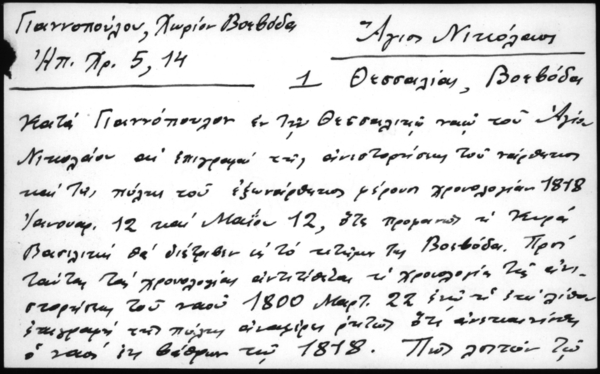 Γιαννοπούλου, Χωρίον Βοεβόδα
Ἠπ. Χρ. 5, 14
Ἅγιος Νικόλαος
1 Θεσσαλίας, Βοεβόδα
Κατὰ Γιαννόπουλον ἐν τῷ Θεσσαλικῷ ναῷ τοῦ Ἁγίου
Νικολάου αἱ ἐπιγραφαὶ τῆς ἀνιστορήσεως τοῦ νάρθηκος
καὶ τῆς πύλης τοῦ ἐξωνάρθηκος φέρουσι χρονολογίαν 1818
Ἰανουαρ. 12 καὶ Μαΐου 12, ὅτε προφανῶς ἡ Κυρὰ
Βασιλικὴ θὰ διέτριβεν εἰς τὸ κτῆμα της Βοεβόδα. Πρὸς
ταύτας τὰς χρονολογίας ἀντιτίθεται ἡ χρονολογία τῆς ἀνι-
στορήσεως τοῦ ναοῦ 1800 Μαρτ. 22 ἐνῷ ἡ ἐπὶ λίθου
ἐπιγραφὴ τῆς πύλης ἀναφέρει ῥητῶς ὅτι ἀνεκαινίσθη
ὁ ναὸς ἐκ βάθρων τῷ 1818. Πῶς λοιπὸν τῷ